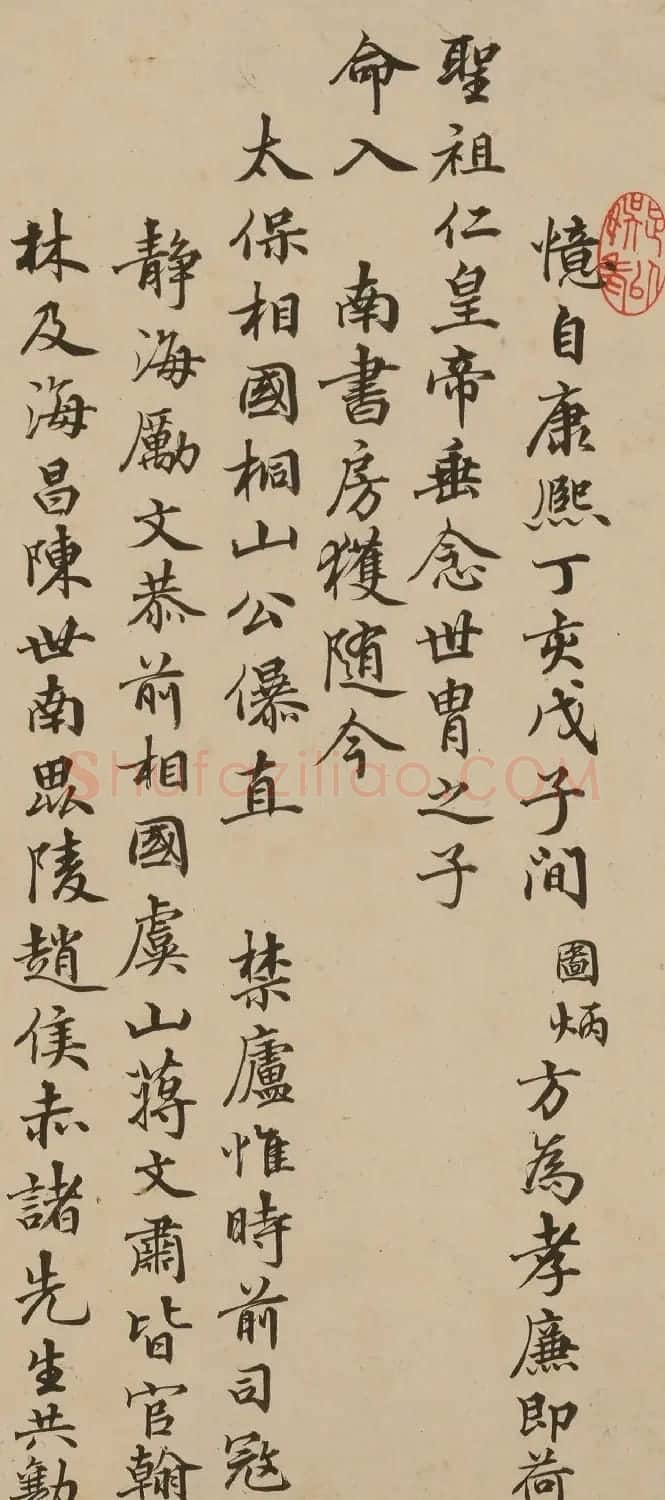 憶自康熙丁亥戊子間圖炳方為孝廉即荷
聖祖仁皇帝垂念世胄之子
命入 南書房獲随今
太保相國桐山公儤直 禁廬惟時前司寇
静海勵文恭前相國虞山蔣文肅皆官翰
林及海昌陳世南毘陵趙侯赤諸先生共勤
Shufaziliao.COM